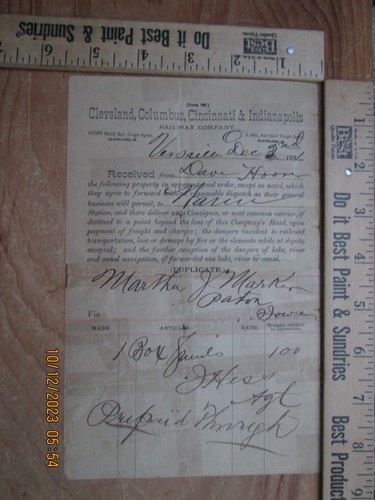 Do it Best Paint & Sundries
(Form 90.)
Cleveland, Columbus, Cincinnati & Indianapolis
RAILWAY COMPANY.
Versailles Dec 2nd
Received from Dave Hoover
the following property in apparent good order, except as noted, which
they agree to forward with reasonable dispatch as their general
business will permit, to
Station, and there deliver unto Consignee, or next common carrier, if
destined to a point beyond the line of this Company's Road, upon
payment of freight and charges; the dangers incident to railroad
transportation, loss or damage by fire or the elements while at depots,
excepted; and the further exception of the dangers of lake, river
and canal navigation, if forwarded via lake, river or canal.
DUPLICATE
Martha J Marker
Paton
Via Iowa
MARK. ARTICLES. RATE.
1 Box 100
J Hess
Agt
Prepaid Through
Best Do it Best Paint & Sundries Best Produc
10/12/2023 05:54